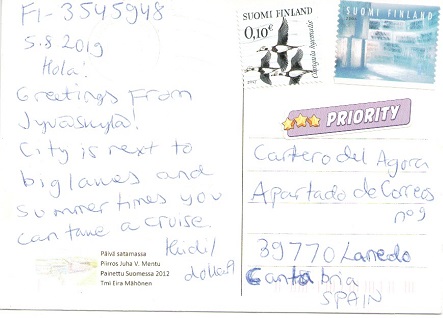 FI-3545948
5.8 2019
Hola!
Greetings From
Jyväskylä!
City is next to
big lakes and
summer times you
can take a cruise.
Heidi/
Päivä satamassa
Piirros Juha V. Mentu
Painettu Suomessa 2012
Tmi Eira Mähönen
SUOMI FINLAND
0,10€
Clangula hyemalis
SUOMI FINLAND
PRIORITY
Cartero del Agora
Apartado de Correos
nº9
39770 Laredo
Cantabria
SPAIN